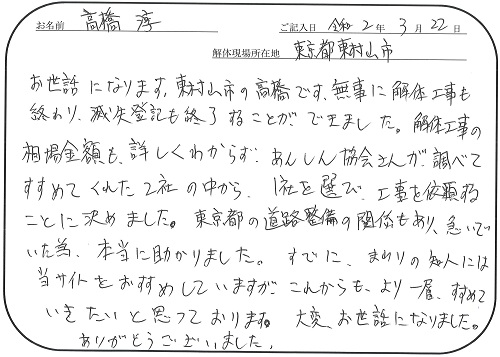 お名前 高橋 淳 ご記入日 令和2年3月22日
解体現場所在地 東京都東村山市
お世話になります。東村山市の高橋です。無事に解体工事も
終わり、滅失登記も終了することができました。解体工事の
相場金額も、詳しくわからず、あんしん協会さんが、調べて
すすめてくれた2社の中から、1社を選び、工事を依頼する
ことに決めました。東京都の道路整備の関係もあり、急いで
いた為、本当に助かりました。すでに、まわりの知人には
当サイトをおすすめしていますが、これからも、より一層、すすめて
いきたいと思っております。大変、お世話になりました。
ありがとうございました。